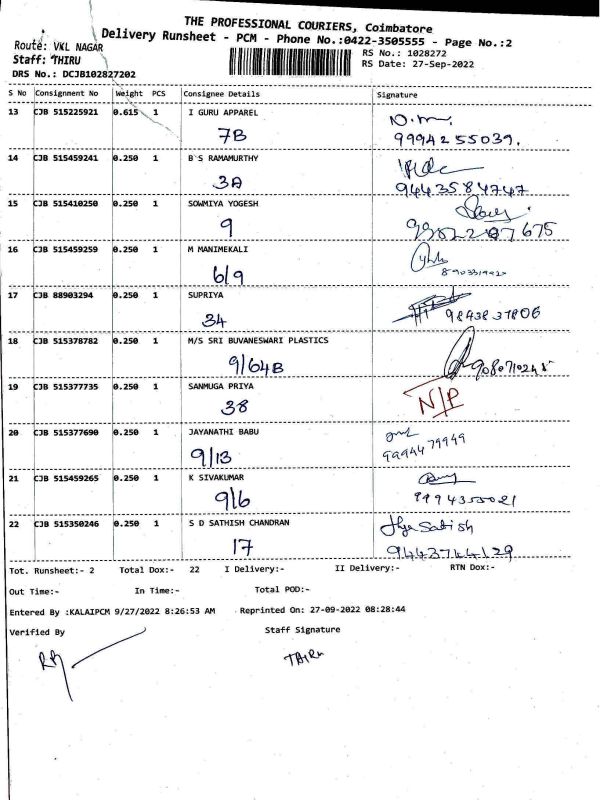 THE PROFESSIONAL COURIERS, Coimbatore
Delivery Runsheet - PCM - Phone No.:0422-3505555 - Page No.:2
Route: VKL NAGAR
RS No.: 1028272
Staff: THIRU
RS Date: 27-Sep-2022
DRS No.: DCJB102827202
S No Consignment No Weight PCS Consignee Details Signature
13 CJB 515225921 0.615 1 I GURU APPAREL
7B 9994255039.
14 CJB 515459241 0.250 1 B S RAMAMURTHY
3A 9443584747
15 CJB 515410250 0.250 1 SOWMIYA YOGESH
9
16 CJB 515459259 0.250 1 M MANIMEKALI
6/9
17 CJB 88903294 0.250 1 SUPRIYA
34 9843837806
18 CJB 515378782 0.250 1 M/S SRI BUVANESWARI PLASTICS
9/64B
19 CJB 515377735 0.250 1 SANMUGA PRIYA
38 N/P
20 CJB 515377690 0.250 1 JAYANATHI BABU
9/13 9994479949
21 CJB 515459265 0.250 1 K SIVAKUMAR
9/6
22 CJB 515350246 0.250 1 S D SATHISH CHANDRAN
17
Tot. Runsheet:- 2 Total Dox:- 22 I Delivery:- II Delivery:- RTN Dox:-
Out Time:- In Time:- Total POD:-
Entered By :KALAIPCM 9/27/2022 8:26:53 AM Reprinted On: 27-09-2022 08:28:44
Verified By Staff Signature